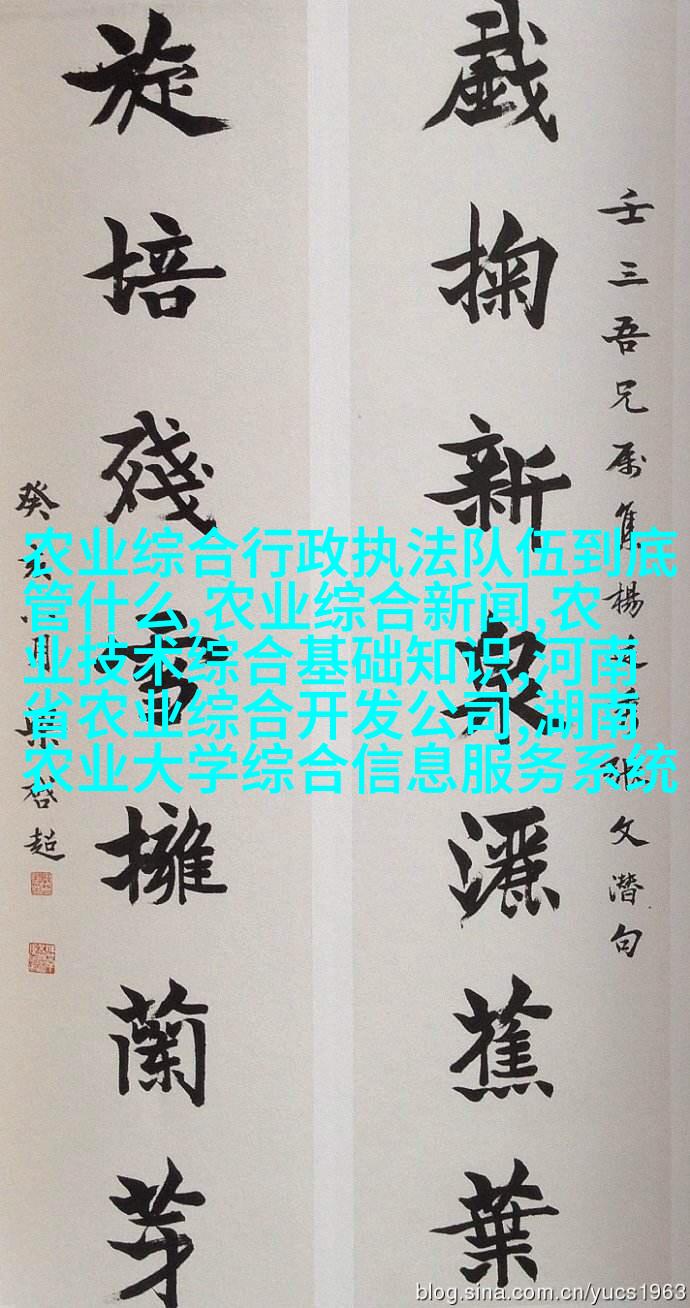 壬三吾兄属集楊張文潛句
戲掬新泉灑蕉葉
旋培殘雪擁蘭芽
癸亥月梁啓超
农业综合行政执法队伍到底
管什么,农业综合新闻,农
业技术综合基础知识,河南
省农业综合开发公司,湖南
农业大学综合信息服务系统
blog.sina.com.cn/yucs1963